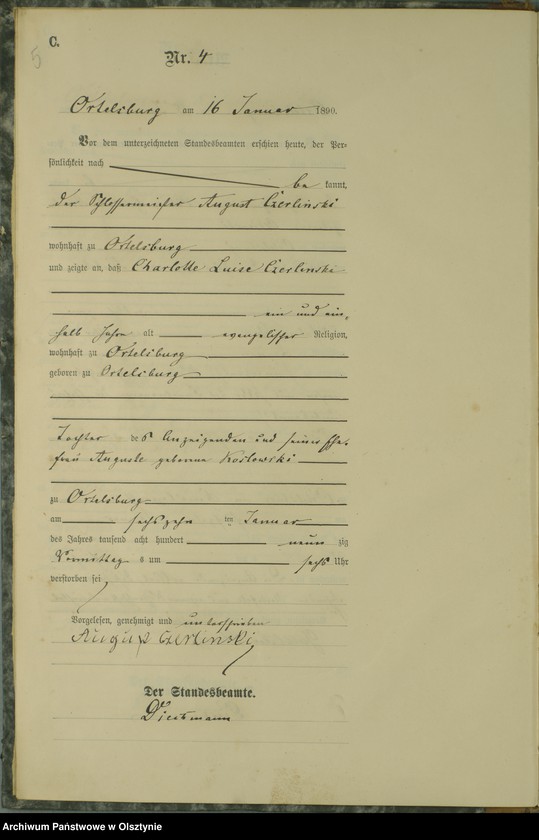 5
C.
Nr. 4
Ortelsburg am 16 Januar 1890.
Vor dem unterzeichneten Standesbeamten erschien heute, der Per-
sönlichkeit nach
be kannt,
der Schlossermeister August Czerlinski
wohnhaft zu Ortelsburg
und zeigte an, daß Charlotte Luise Czerlinski
ein und ein-
halb Jahre alt evangelischer Religion,
wohnhaft zu Ortelsburg
geboren zu Ortelsburg
Tochter des Anzeigenden und seiner Ehe-
frau Auguste geborene Koslowski
zu Ortelsburg
am sechszehn ten Januar
des Jahres tausend acht hundert neun zig
Vormittag s um sechs Uhr
verstorben sei
Vorgelesen, genehmigt und unterschrieben
August Czerlinski
Der Standesbeamte.
Dieckmann
Archiwum Państwowe w Olsztynie